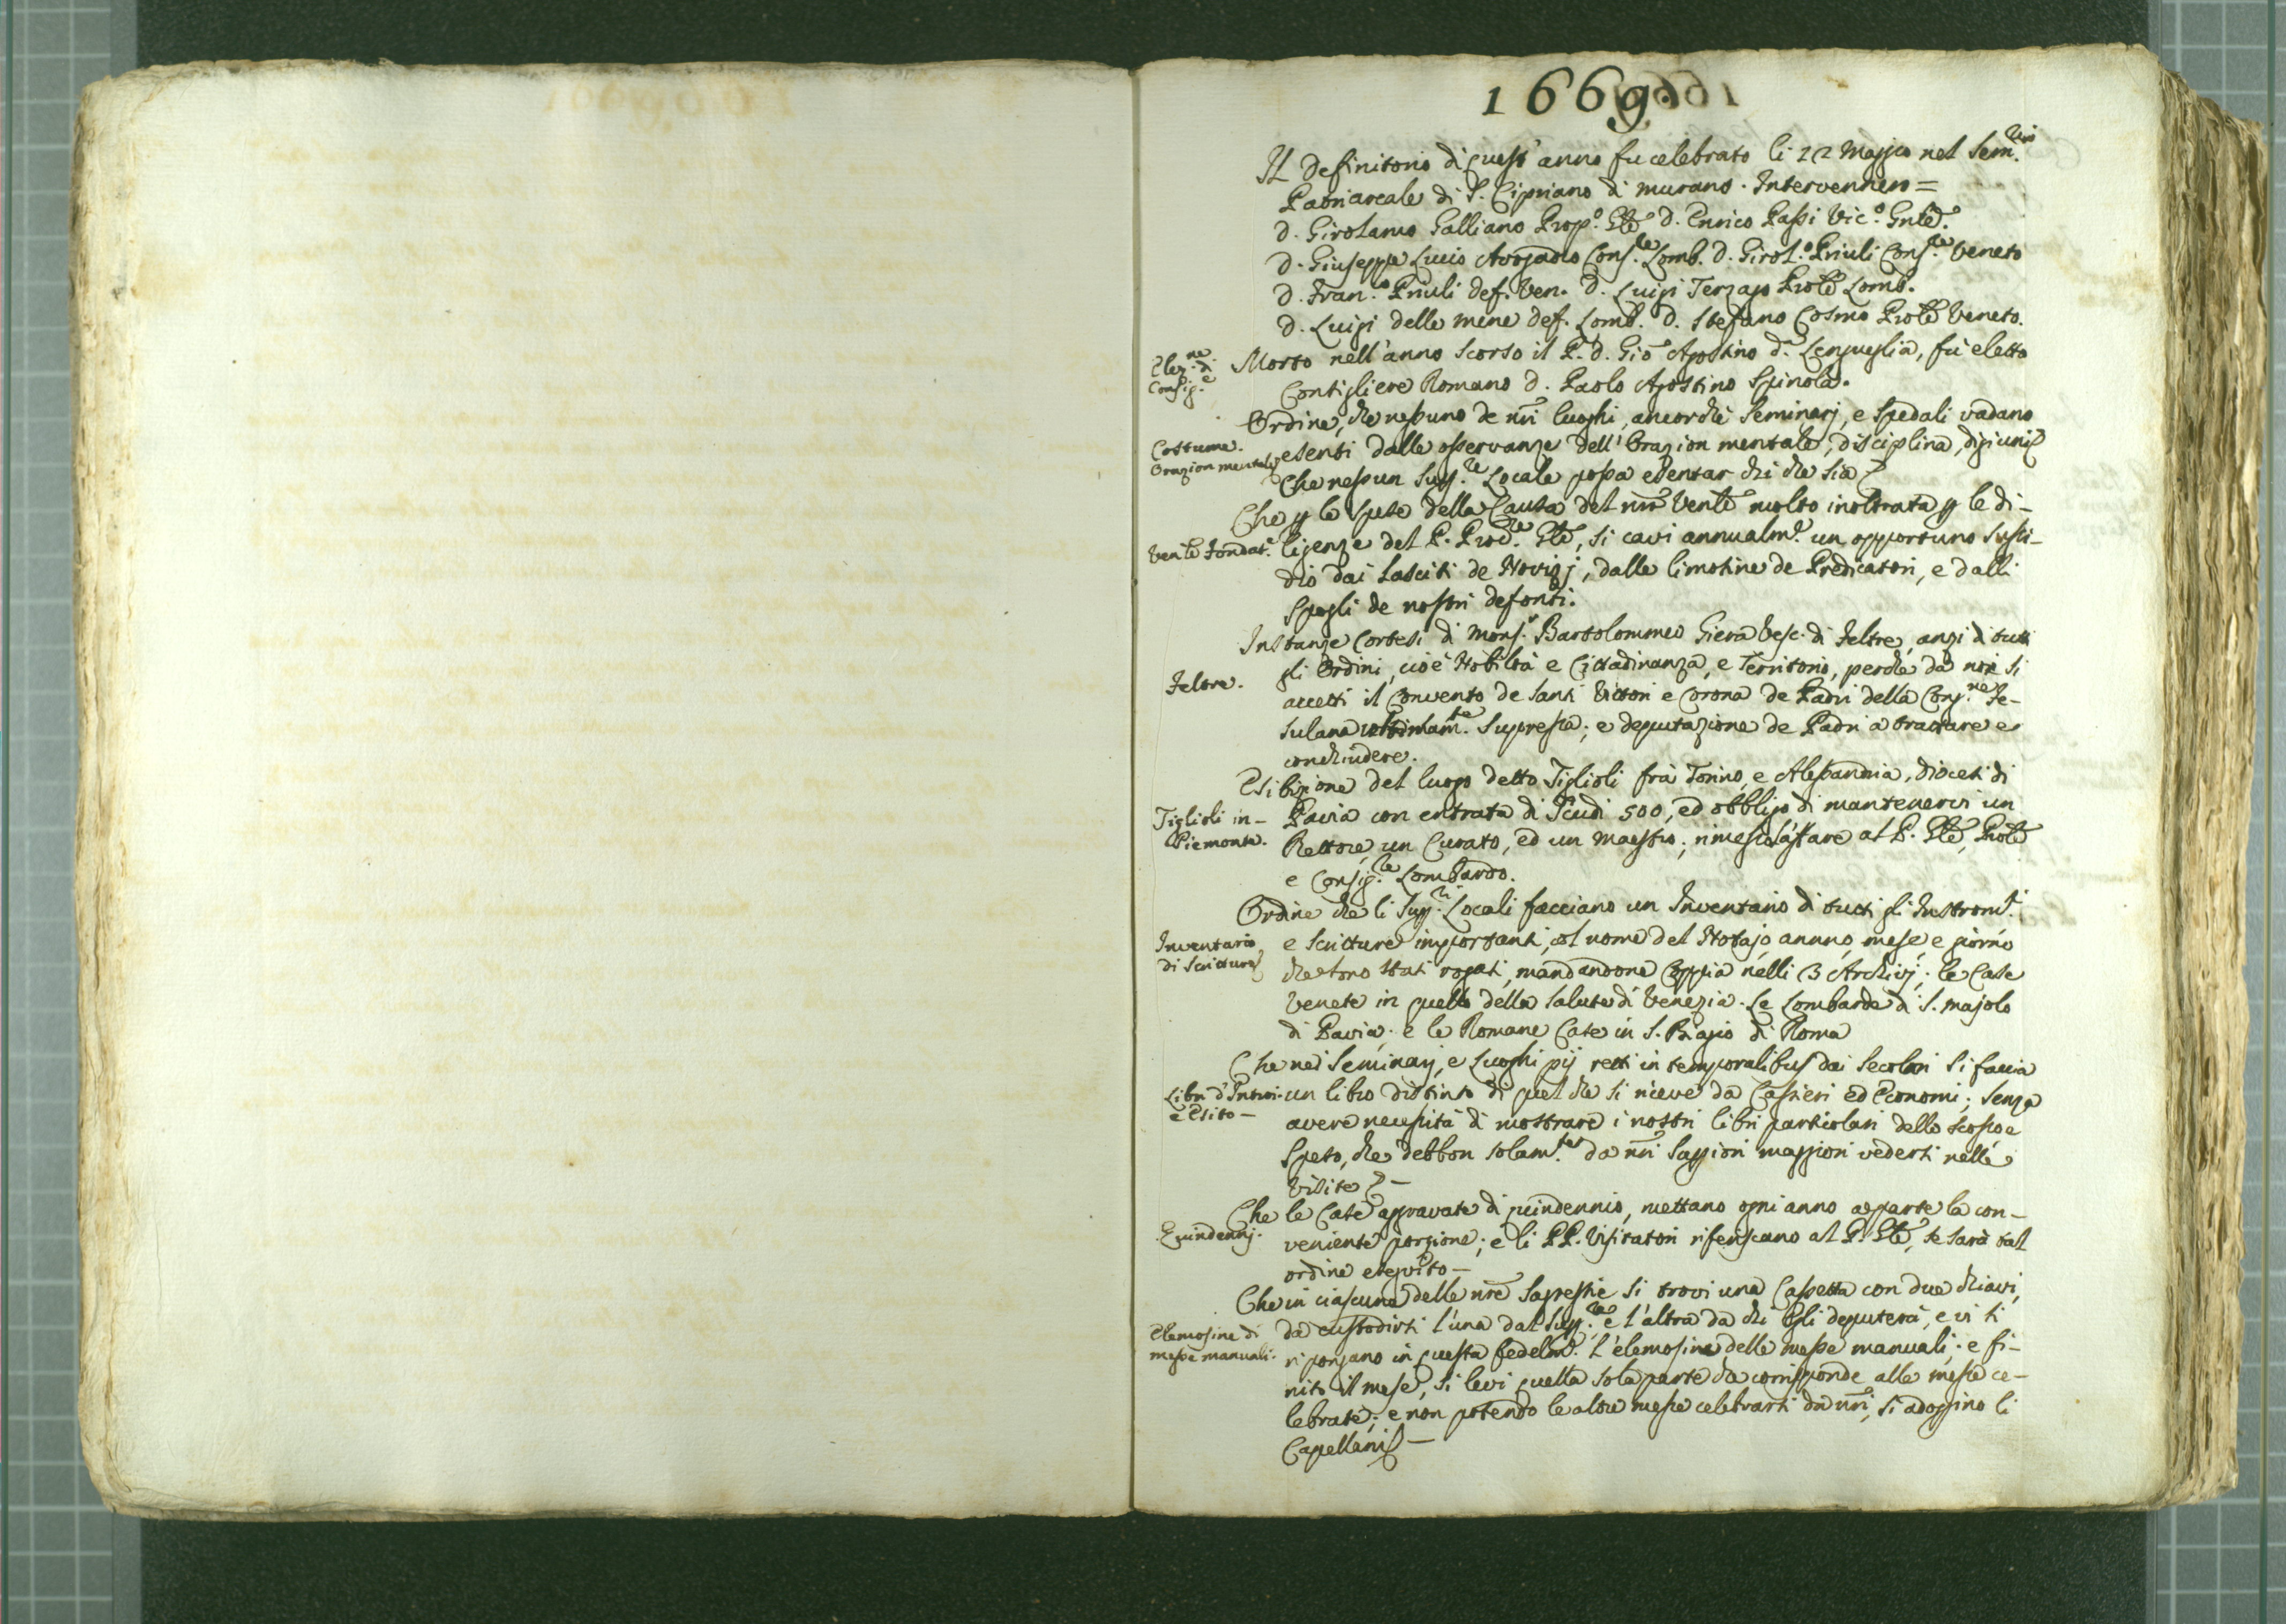 1669.
Il Definitorio di quest'anno fu celebrato li 12 Maggio nel Sem.rio
Patriarcale di S. Cipriano di Murano. Intervennero =
D. Girolamo Galliano Prop.o Gñle D. Enrico Passi Vic.o Gnle.
D. Giuseppe Lucio Avogadro Cons.re Lomb. D. Girol.o Priuli Cons.re Veneto
D. Fran.o Priuli def. Ven. D. Luigi Terzago Prole Lomb.
D. Luigi delle Mene def. Lomb. D. Stefano Cosmo Prole Veneto.
Elez.ne di
Consig.e
Morto nell'anno scorso il P. D. Gio Agostino d. Lengueglia, fù eletto
Consigliere Romano D. Paolo Agostino Spinola.
Costume.
Orazion mentale
Ordine, che nessuno de nri luoghi, ancorchè Seminarj, e Spedali vadano
esenti dalle osservanze dell'Orazion mentale, disciplina, digiuni
Che nessun Sup.re Locale possa esentar chi che sia
Ven.le Fondat.e
Che p le spese della Causa del nro Venle molto inoltrata p le di-
ligenze del P. Proc.re Gñle, si cavi annualm.e un opportuno sussi-
dio dai lasciti de Novizj, dalle limosine de Predicatori, e dalli
spogli de nostri defonti.
Feltre.
Instanze cortesi di Mons.r Bartolommeo Giera Vesc. di Feltre, anzi di tutti
gli Ordini, cioè Nobiltà e Cittadinanza, e Territorio, perchè da noi si
accetti il Convento de Santi Vittori e Corona de Padri della Cong.ne Fe-
sulana ultimam.te Supressa; e deputazione de Padri a trattare e
conchiudere.
Tiglioli in
Piemonte.
Esibizione del luogo detto Tiglioli frà Torino, e Alessandria, diocesi di
Pavia con entrata di Scudi 500, ed obbligo di mantenervi un
Rettore, un Curato, ed un Maestro; rimesso l'affare al P. Gñle, Prole
e Consig.re Lombardo.
Inventario
di Scritture
Ordine che li Sup.ri Locali facciano un Inventario di tutti gli Instrom.i
e Scritture importanti, col nome del Notajo, annno, mese, e giorno
che sono stati rogati, mandandone Coppia nelli 3 Archivj; le Case
Venete in quello della Salute di Venezia. Le Lombarde di S. Majolo
di Pavia; e le Romane Case in S. Biagio di Roma
Libri d'Introi-
e Esito —
Che nei Seminarj, e Luoghi pij retti in temporalibus dai Secolari si faccia
un libro distinto di quel che si riceve da Cassieri ed Economi; senza
avere necessità di mostrare i nostri libri particolari dello scosso e
Speso, che debbon solam.te da nri Maggiori vedersi nelle
Visite —
Quindennj.
Che le Case aggravate di quindennio, mettano ogni anno a parte la con-
veniente porzione; e li PP. Visitatori riferiscano al P. Gñle, se sarà tal
ordine eseguito —
Elemosine di
messe manuali.
Che in ciascuna delle nre Sagrestie si trovi una Cassetta con due chiavi,
da custodirsi l'una dal Sup.re e l'altra da chi Egli deputerà, e vi si
ripongano in questa fedelm.e l'elemosine delle messe manuali; e fi-
nito il mese, si levi quella sola parte che corrisponde alle messe ce-
lebrate; e non potendo le altre messe celebrarsi da nri, si adoprino li
Capellani —